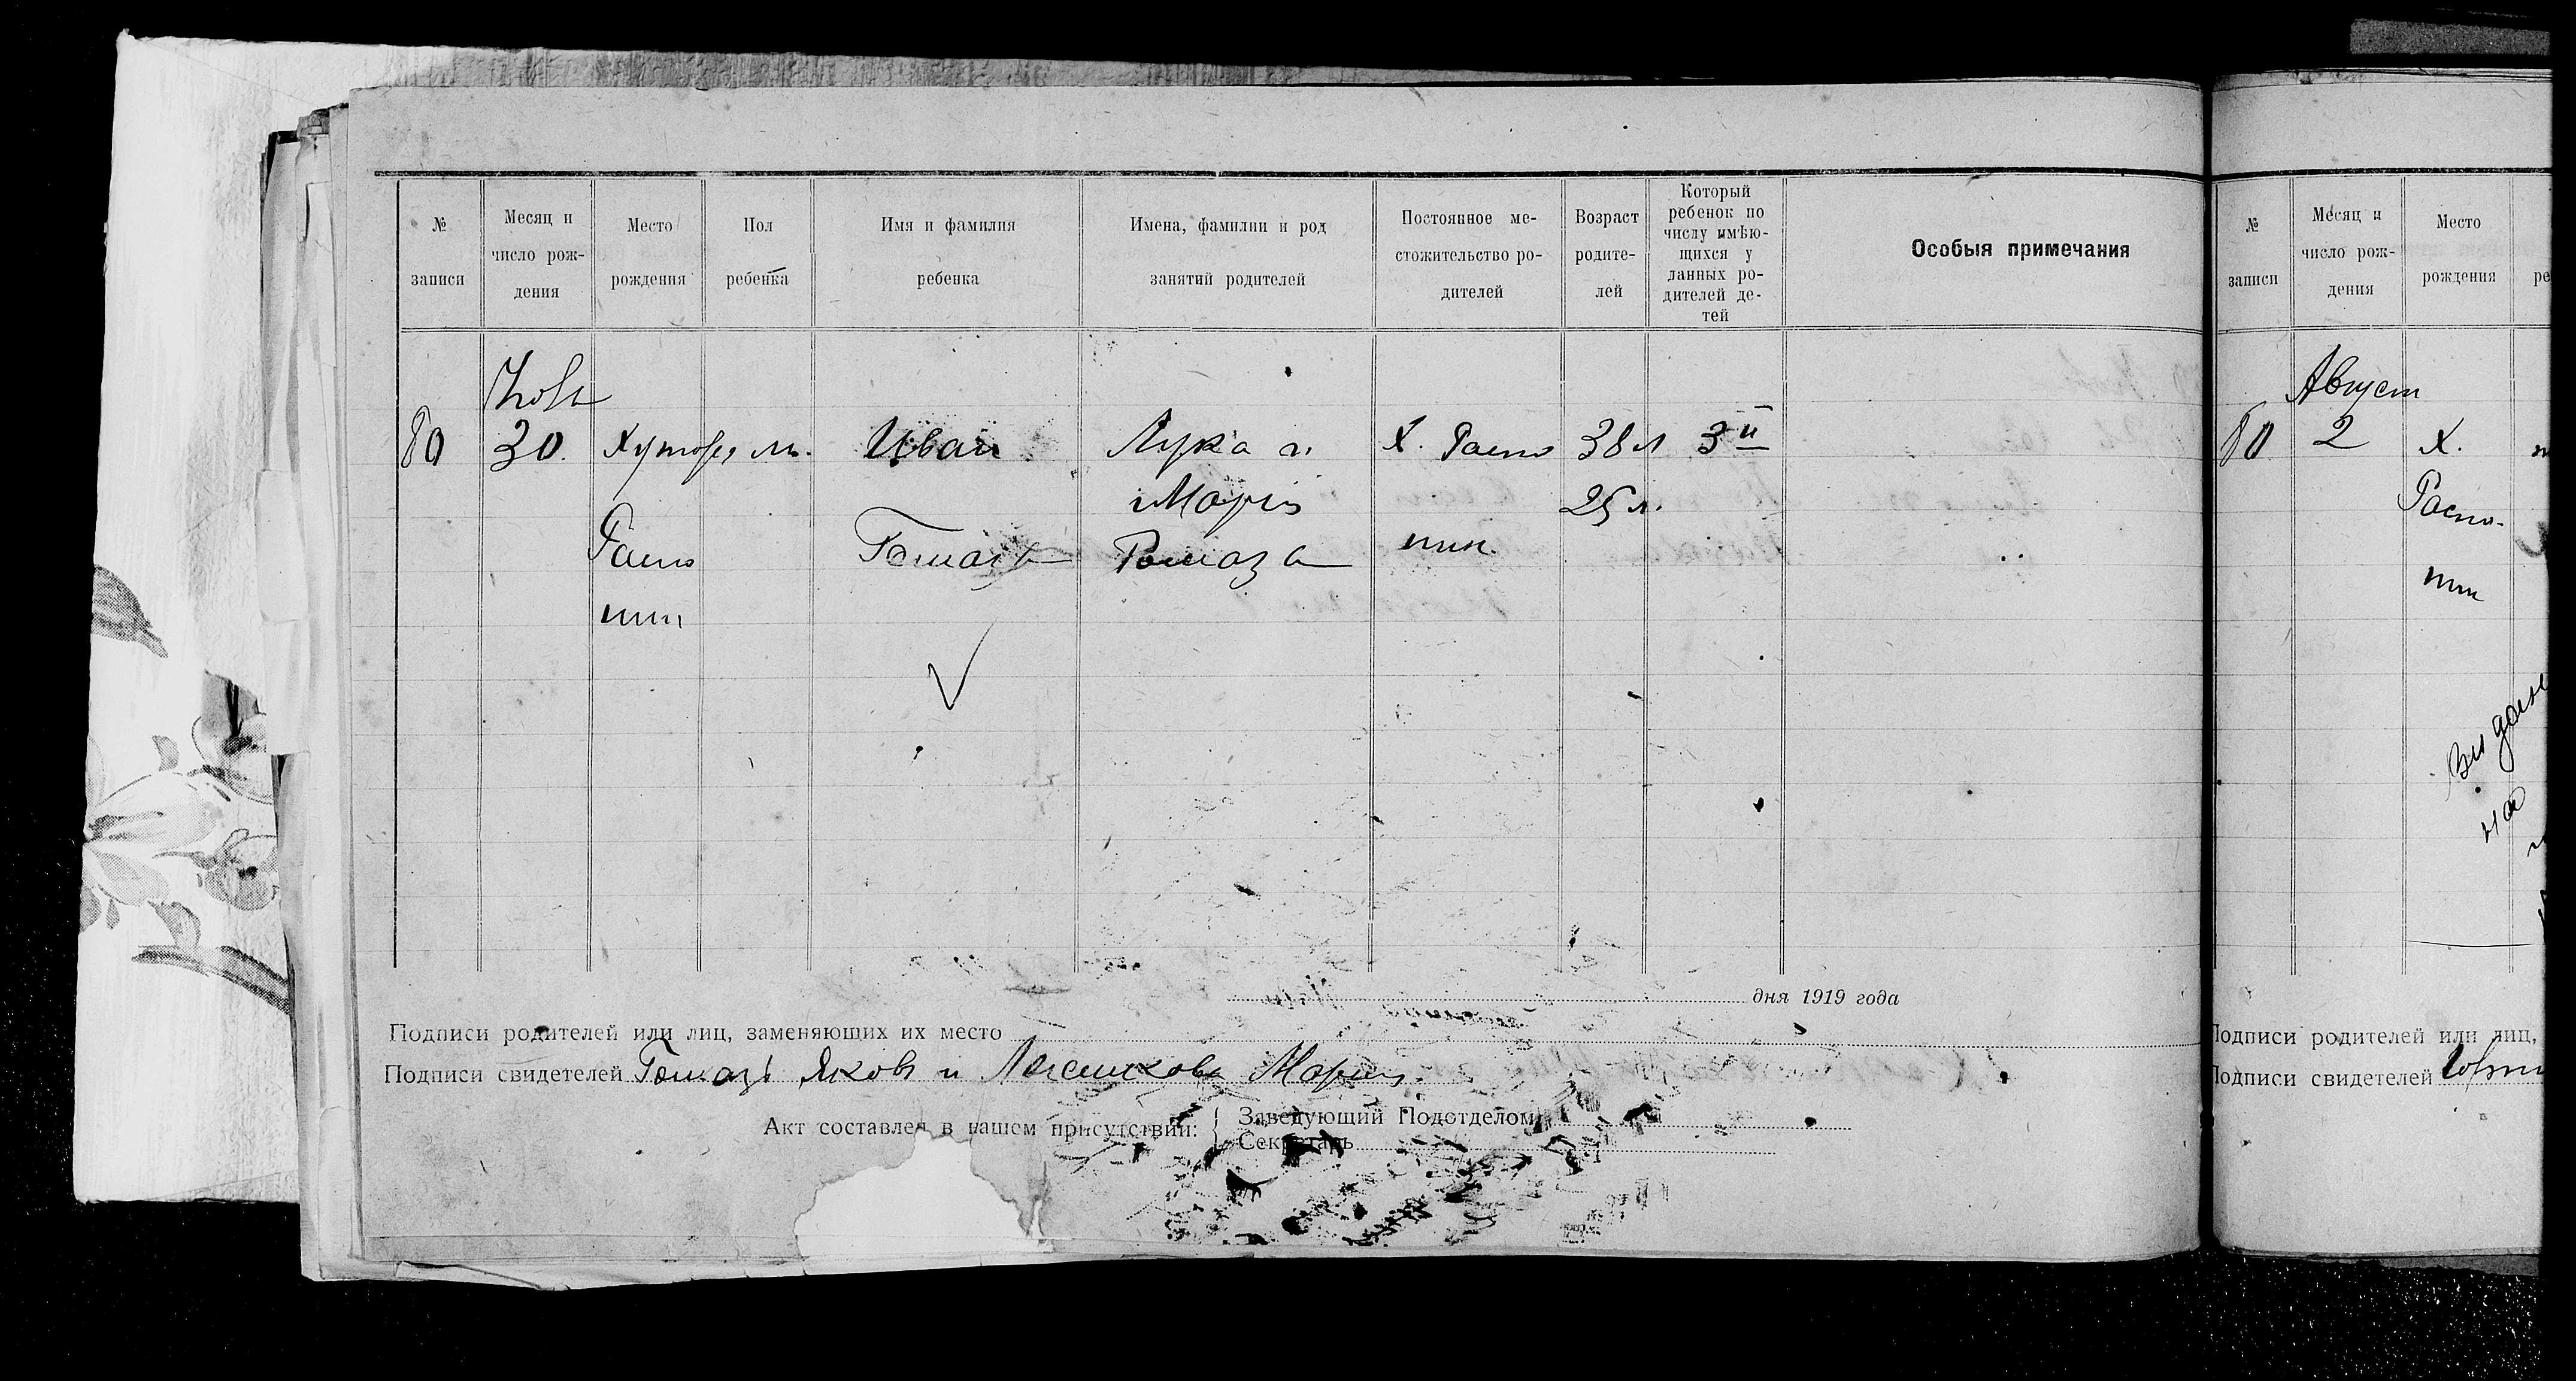 № записи
Месяц и число рождения
Место рождения
Пол ребенка
Имя и фамилия ребенка
Имена, фамилии и род занятий родителей
Постоянное местожительство родителей
Возраст родителей
Который ребенок по числу имѣющихся у данных родителей детей
Особыя примечания
80
30.
Хутор м.
Иван
Лука и
Х. Распо
38 л
3й
Мария
25 л.
Распо
пин
дня 1919 года
Подписи родителей или лиц, заменяющих их место
Подписи свидетелей Яков и Мария
Акт составлен в нашем присутствии:
Заведующий Подотделом
Секретарь
№ записи
Месяц и число рождения
Место рождения
ре
Август
80
2
Х.
Распо-
пин
Подписи родителей или лиц,
Подписи свидетелей